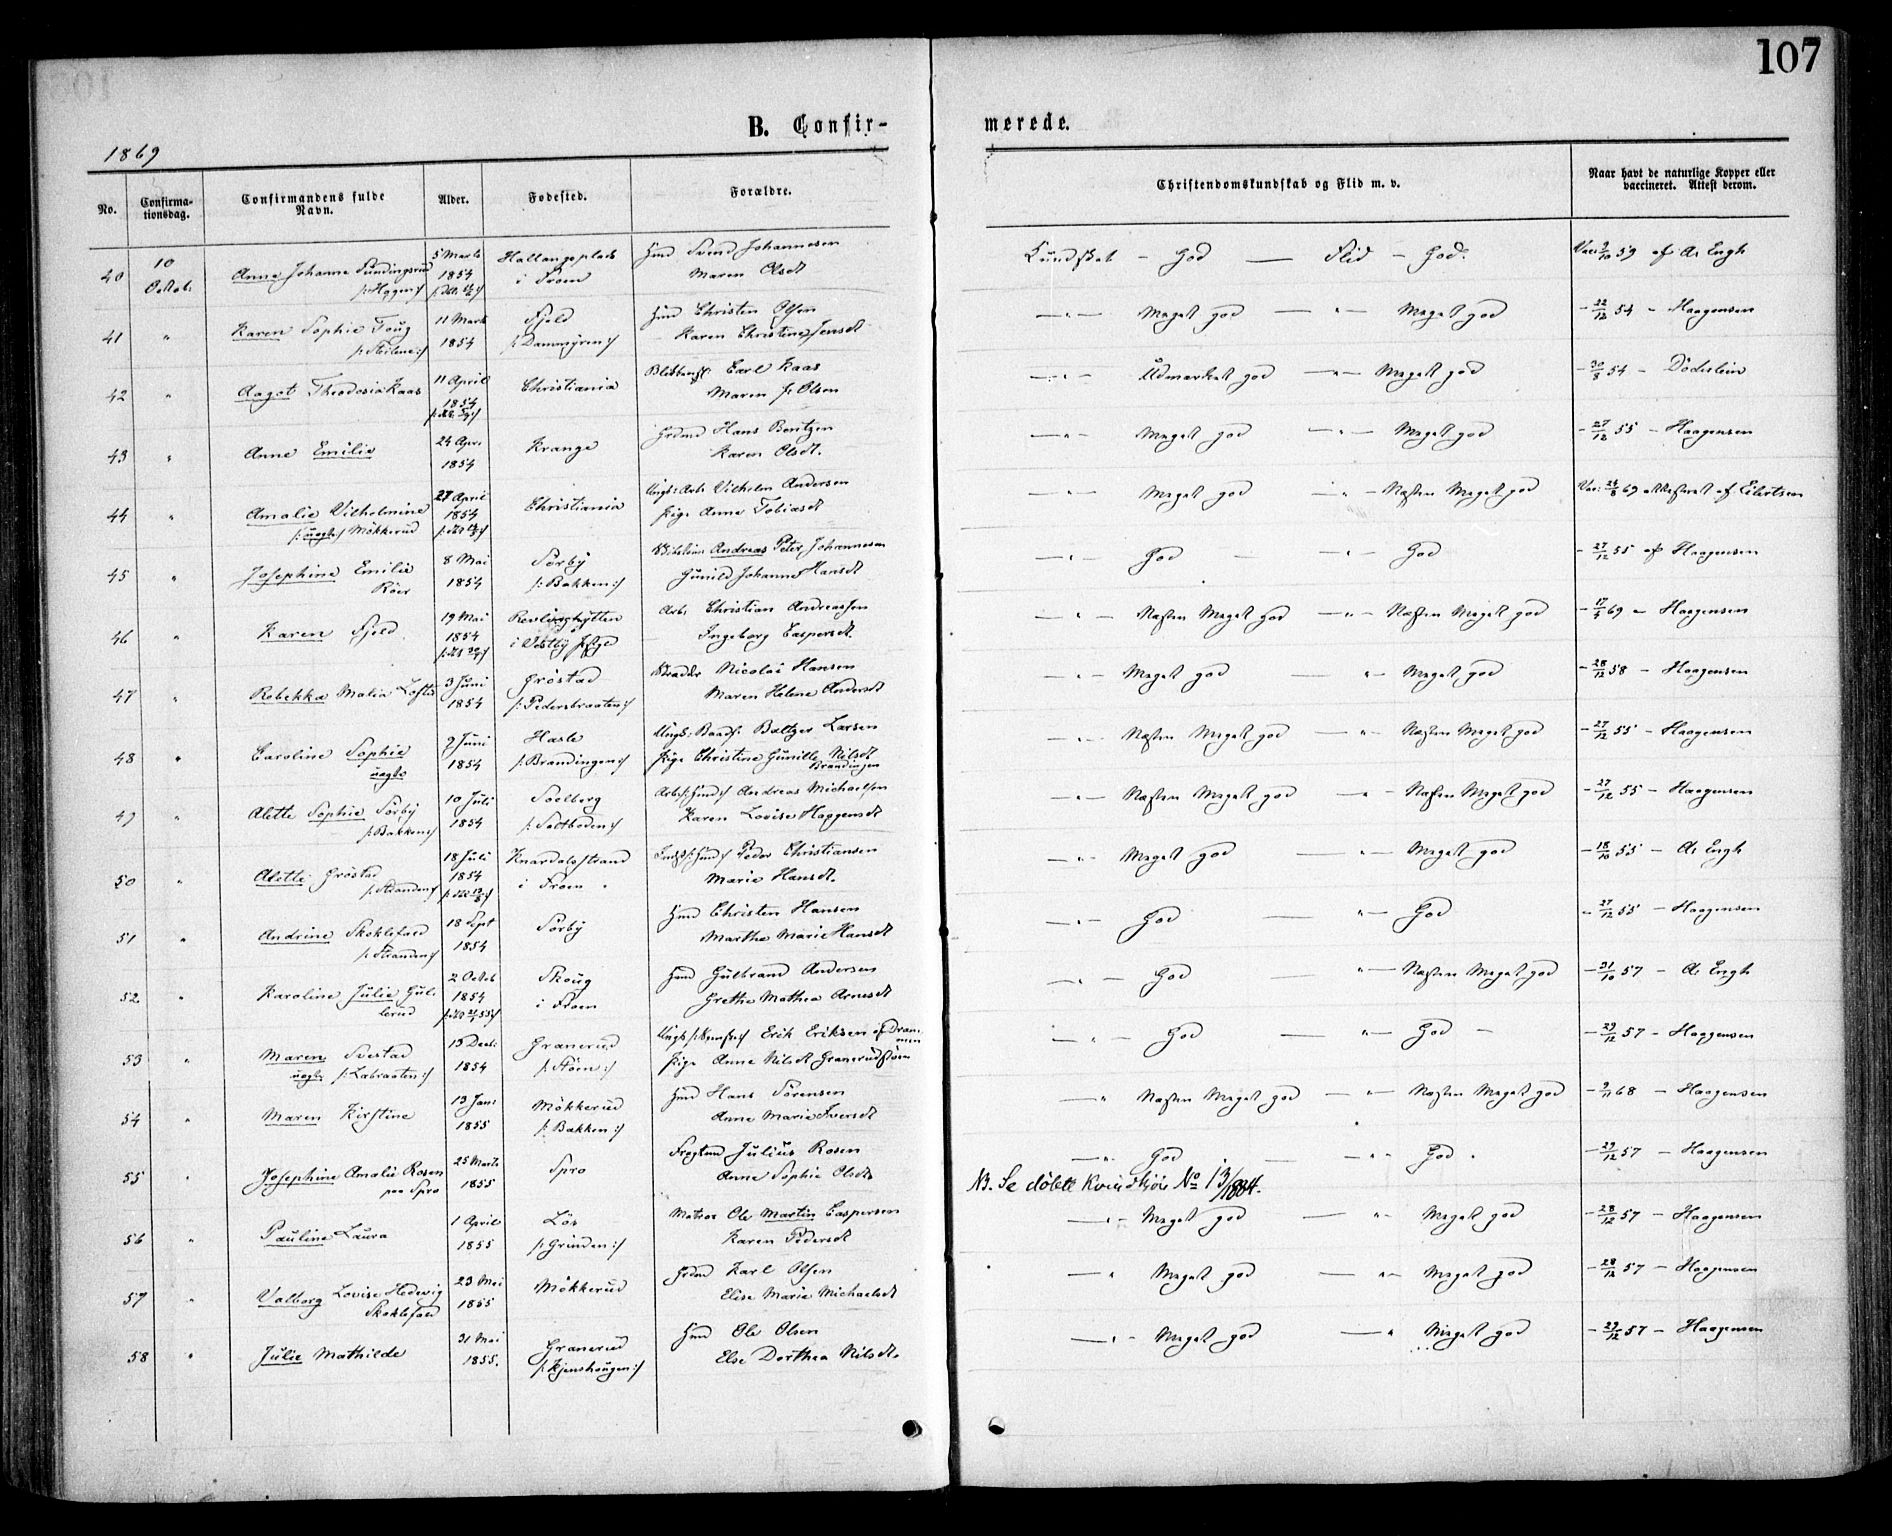 107
B. Confir-
merede.
1869
No.
Confirma-
tionsdag.
Confirmandens fulde
Navn.
Alder.
Fødested.
Forældre.
Christendomskundskab og Flid m. v.
Naar havt de naturlige Kopper eller
vaccineret. Attest derom.
40 10 Octob: Anne Johanne Sundingsrud 5 Marts 1854 Hallangsplads i Froen Hmd Svend Johannesen Maren Olsdt Kundskab - God - Flid - God. Vac: 9/10 59 af A. Engh
41 " Karen Sophie Toug /: Steilene :/ 11 Marts 1854 Fjeld /: Dammyren :/ Hmd Christen Olsen Karen Christine Jensdt - " - Meget god - " - Meget god - 22/12 54 - Haagensen
42 " Aagot Theodosia Kaas 11 April 1854 Christiania Carl Kaas Maren Olsen - " - Udmærket god - " - Meget god - 30/8 54 - Döderlein
43 " Anne Emilie 24 April 1854 Krange Grdmd Hans Bentzen Karen Olsdt. - " - Meget god - " - Meget god - 27/12 55 - Haagensen
44 " Amalie Vilhelmine /: uægte :/ Mökkerud 27 April 1854 Christiania Ungk: Arb: Vilhelm Andersen Pige Anne Tobiasdt - " - Meget god - " - Næsten Meget god Vac: 24/8 69 attesteret af Eilertsen
45 " Josephine Emilie Röer 8 Mai 1854 Sørby /: Bakken :/ Andreas Peter Johannesen Gunild Johanne Hansdt - " - God - " - God - 27/12 55 af Haagensen
46 " Karen Fjeld 19 Mai 1854 i Vestby Arb: Christian Andreassen Ingeborg Caspersdt. - " - Næsten Meget god - " - Næsten Meget god - 17/4 69 - Haagensen
47 " Rebekka Malia 3 Juni 1854 Gröstad /: Pedersbraaten :/ Nicolai Hansen Maren Helene Andersdt - " - Meget god - " - Meget god - 28/12 58 - Haagensen
48 " Caroline Sophie uægte 9 Juni 1854 Hasle /: Brandingen :/ Ungk: Baltzer Larsen Pige Christine Gunille Nilsdt Brandingen - " - Næsten Meget god - " - Næsten Meget god - 27/12 55 - Haagensen
49 " Alette Sophie Sørby /: Bakken :/ 10 Juli 1854 Soelberg /: Saltboden :/ Andreas Michaelsen Karen Lovise Haagensdt - " - Næsten Meget god - " - Næsten Meget god - 27/12 55 - Haagensen
50 " Alette Gröstad /: Stranden :/ 18 Juli 1854 Knardalsstrand i Froen Peder Christiansen Marie Hansdt. - " - Meget god - " - Meget god - 18/10 55 - A. Engh
51 " Andrine Skoklefald /: Stranden :/ 18 Sept 1854 Sørby Hmd Christen Hansen Marthe Marie Hansdt - " - God - " - God - 27/12 55 - Haagensen
52 " Karoline Julie Gullerud 2 Octob 1854 Skoug i Froen Hmd Gulbrand Andersen Grethe Mathea Arnesdt - " - God - " - Næsten Meget god - 31/10 57 - A. Engh
53 " Maren Svestad uægte /: Labraaten :/ 15 Dec: 1854 Granerud /: Støen :/ Erik Eriksen af Drammen Pige Anne Nilsdt Granerudstøen - " - God - " - God - 29/12 57 - Haagensen
54 " Maren Kirstine 13 Janr 1855 Mökkerud /: Bakken :/ Hmd Hans Sørensen Anne Marie Iversdt - " Næsten Meget god - " - Næsten Meget god - 9/11 68 - Haagensen
55 " Josephine Amalie Rosen paa Spro 25 Marts 1855 Spro Julius Rosen Anne Sophie Olsdt - " - God - " - God - 29/12 57 - Haagensen
NB. Se døbte Kvindkjøn No 13/1884.
56 " Pauline Laura 1 April 1855 Løs /: Grinden :/ Matros Ole Martin Caspersen Karen Pedersdt - " - Meget god - " - Meget god - 28/12 57 - Haagensen
57 " Valborg Lovise Hedevig Skoklefald 23 Mai 1855 Mökkerud Grdmd Karl Olsen Elise Marie Michaelsdt - " Meget god - " - Meget god - 28/12 57 - Haagensen
58 " Julie Mathilde 31 Mai 1855. Granerud /: Kjenshougen :/ Hmd Ole Olsen Else Dorthea Nilsdt. - " - Meget god - " Meget god - 29/12 57 - Haagensen